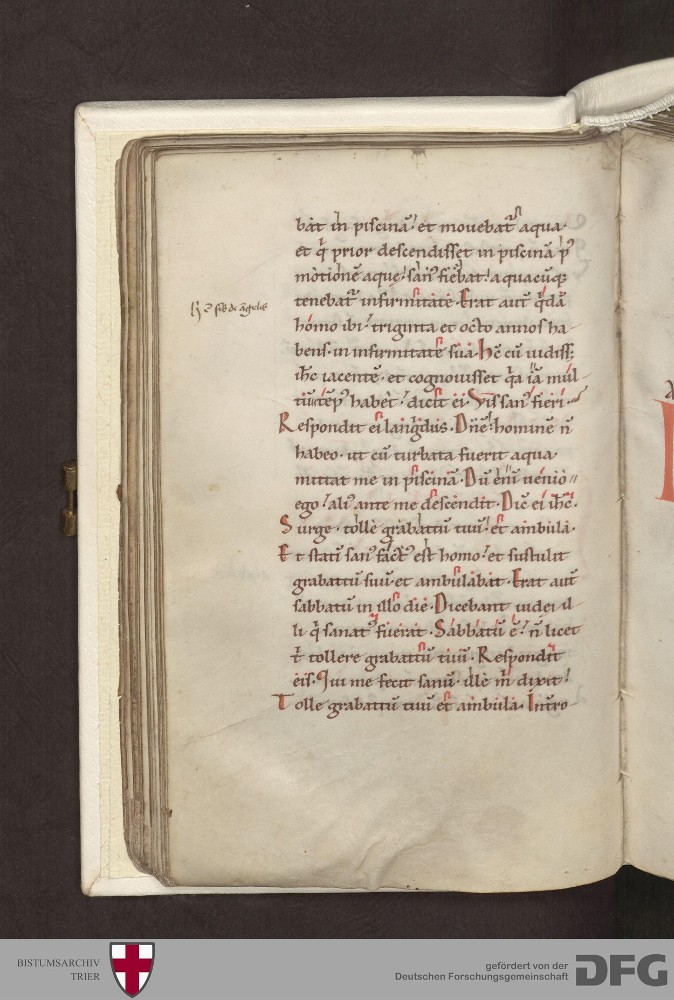 bat in piscinā. et mouebat᷑ aqua.
et q̇ prior descendisset in piscinā p᷒
motionē aquę. san᷒ fiebat. a quacūq;
tenebat᷑ infirmitate. Erat aut̄ q̇dā
homo ibi. triginta et octo annos ha
bens in infirmitate sua. Hc̄ cū uidiss;
ih̄c iacentē. et cognouisset q̇a iā mul
tū tēp᷒ haberet. dicit ei. Vis san᷒ fieri.
Respondit ei languidus. Dn̄e. hominē n̄
habeo. ut cū turbata fuerit aqua
mittat me in piscinā. Dū enī uenio
ego. ali᷒ ante me descendit. Dic̄ ei ih̄c.
Surge. tolle grabattū tuū. et ambula.
Et statī san᷒ fact᷒ est homo. et sustulit
grabattū suū. et ambulabat. Erat aut̄
sabbatū in illo die. Dicebant iudei il
li q̇ sanat᷒ fuerat. Sabbatū ē. n̄ licet
t̄ tollere grabattū tuū. Respondit
eis. Qui me fecit sanū. ille m̄ dixit.
Tolle grabattū tuū et ambula. Intro
de āgelis
BISTUMSARCHIV
TRIER
gefördert von der
Deutschen Forschungsgemeinschaft
DFG